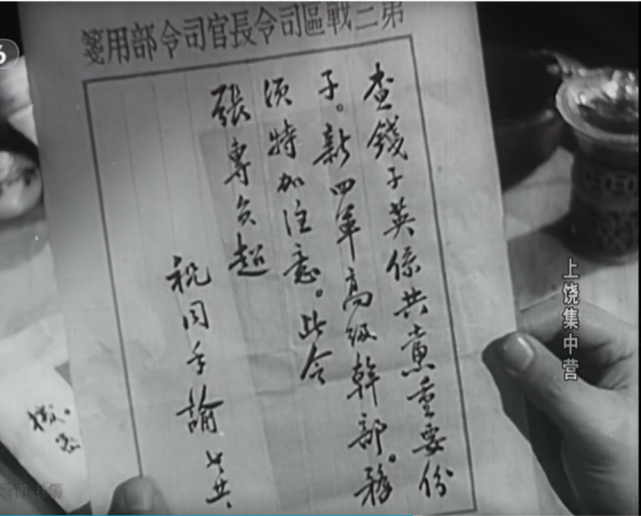 6
第三戰區司令長官司令部用箋
查錢子英係共黨重要份
子。新四軍高級幹部。務
須特加注意。此令
張專員超
祝同手諭
上饶集中营